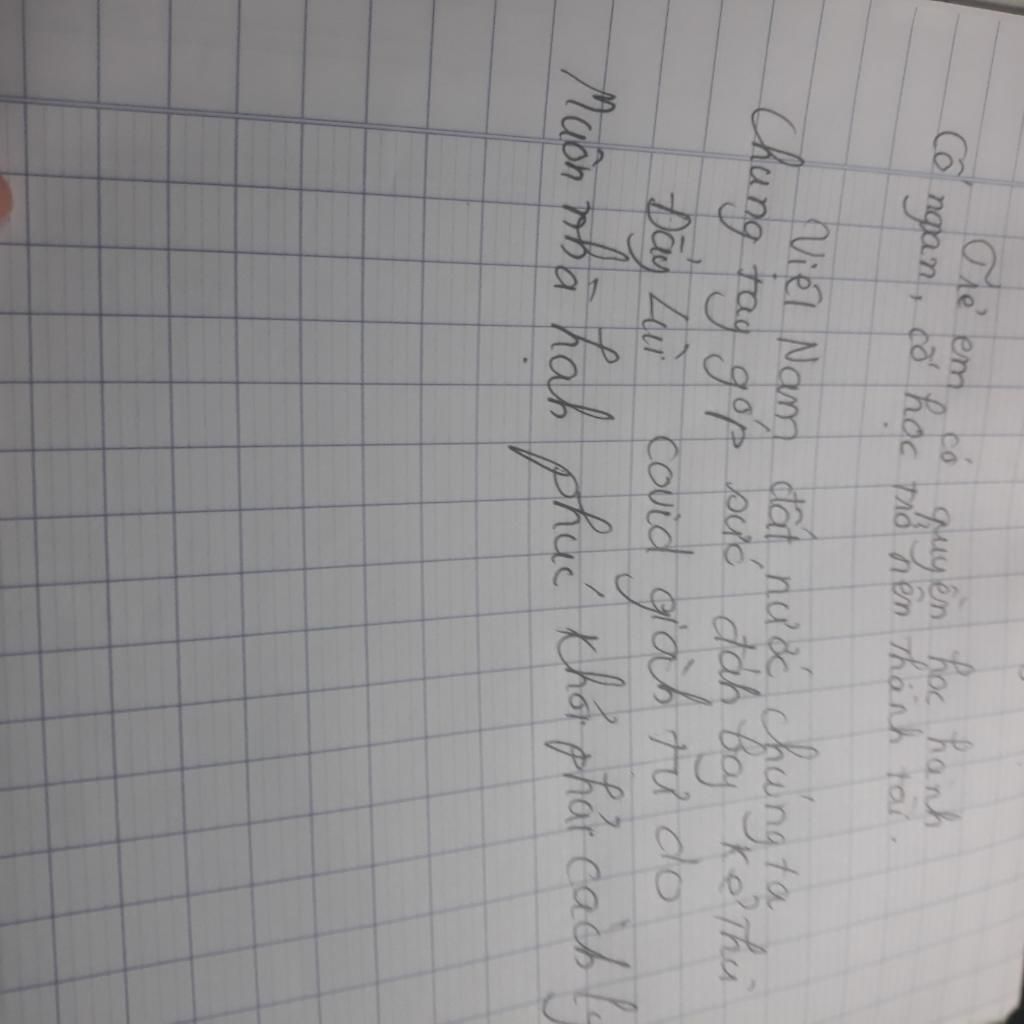 Thẻ em có quyền học hành
Cố ngan, cố học mở nên thành tài.
Việt Nam đất nước chúng ta
Chung tay góp sức đáh bay kẻ thù
Đẩy Lùi covid giàh tự do
Muôn nhà hạh phúc khỏi phải cách ly